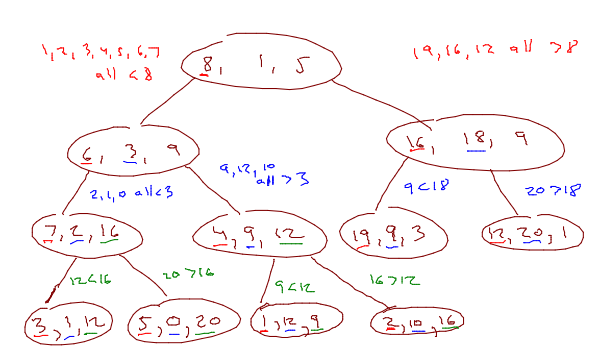 1, 2, 3, 4, 5, 6, 7
all < 8
19, 16, 12 all > 8
8, 1, 5
6, 3, 9
16, 18, 9
2, 1, 0 all < 3
9, 12, 10
all > 3
9 < 18
20 > 18
7, 2, 16
4, 9, 12
19, 9, 3
12, 20, 1
12 < 16
20 > 16
9 < 12
16 > 12
3, 1, 12
5, 0, 20
1, 12, 9
2, 10, 16